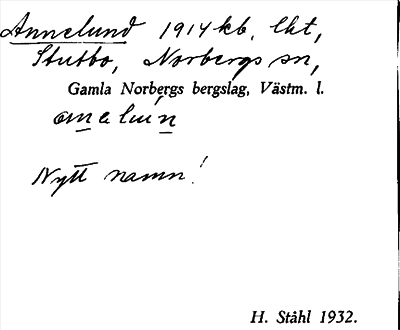 Annelund 1914 kb, lht,
Stutbo, Norbergs sn,
Gamla Norbergs bergslag, Västm. l.
Nytt namn!
H. Ståhl 1932.